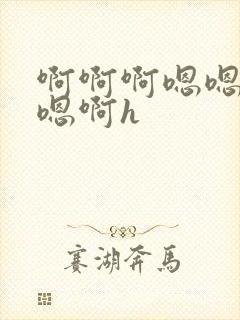 啊啊啊嗯嗯
嗯啊h
赛湖奔馬